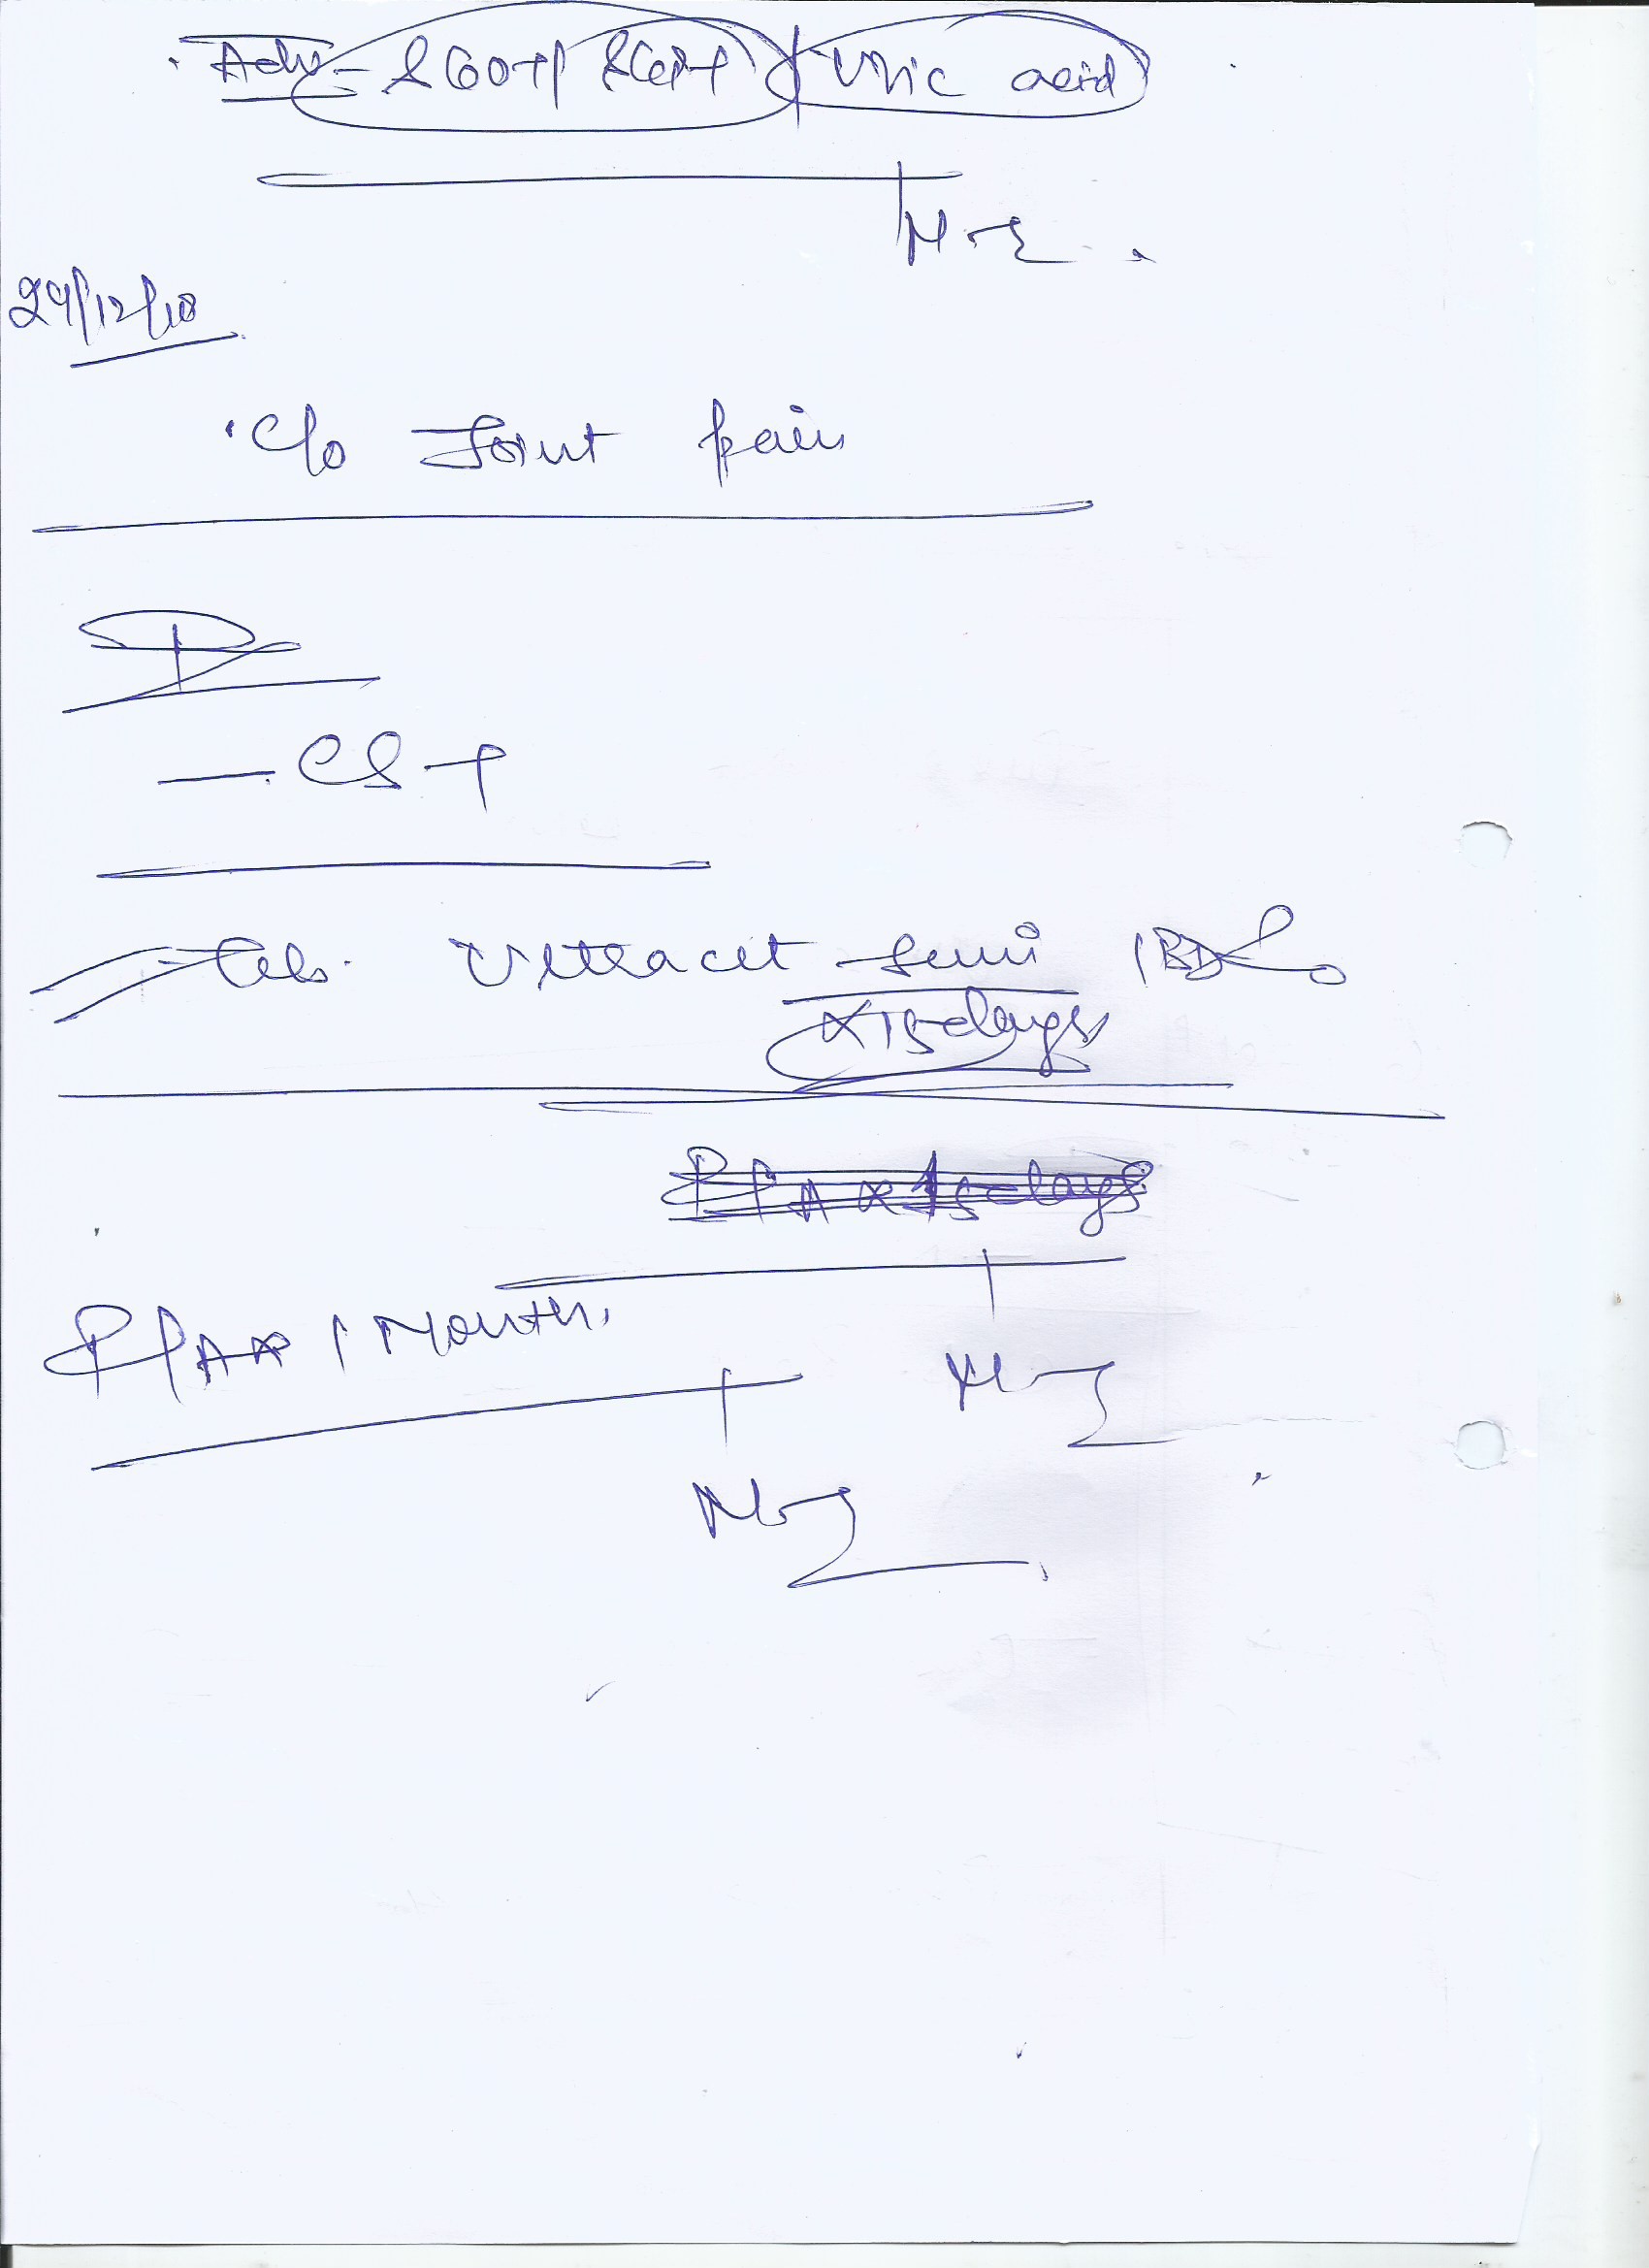 Adv - SGOT/ SGPT / Uric acid
29/12/18
c/o Joint pain
- CST
Tab. Ultracet semi 1BD
x 15 days
R/A x 15 days
R/A x 1 Month.